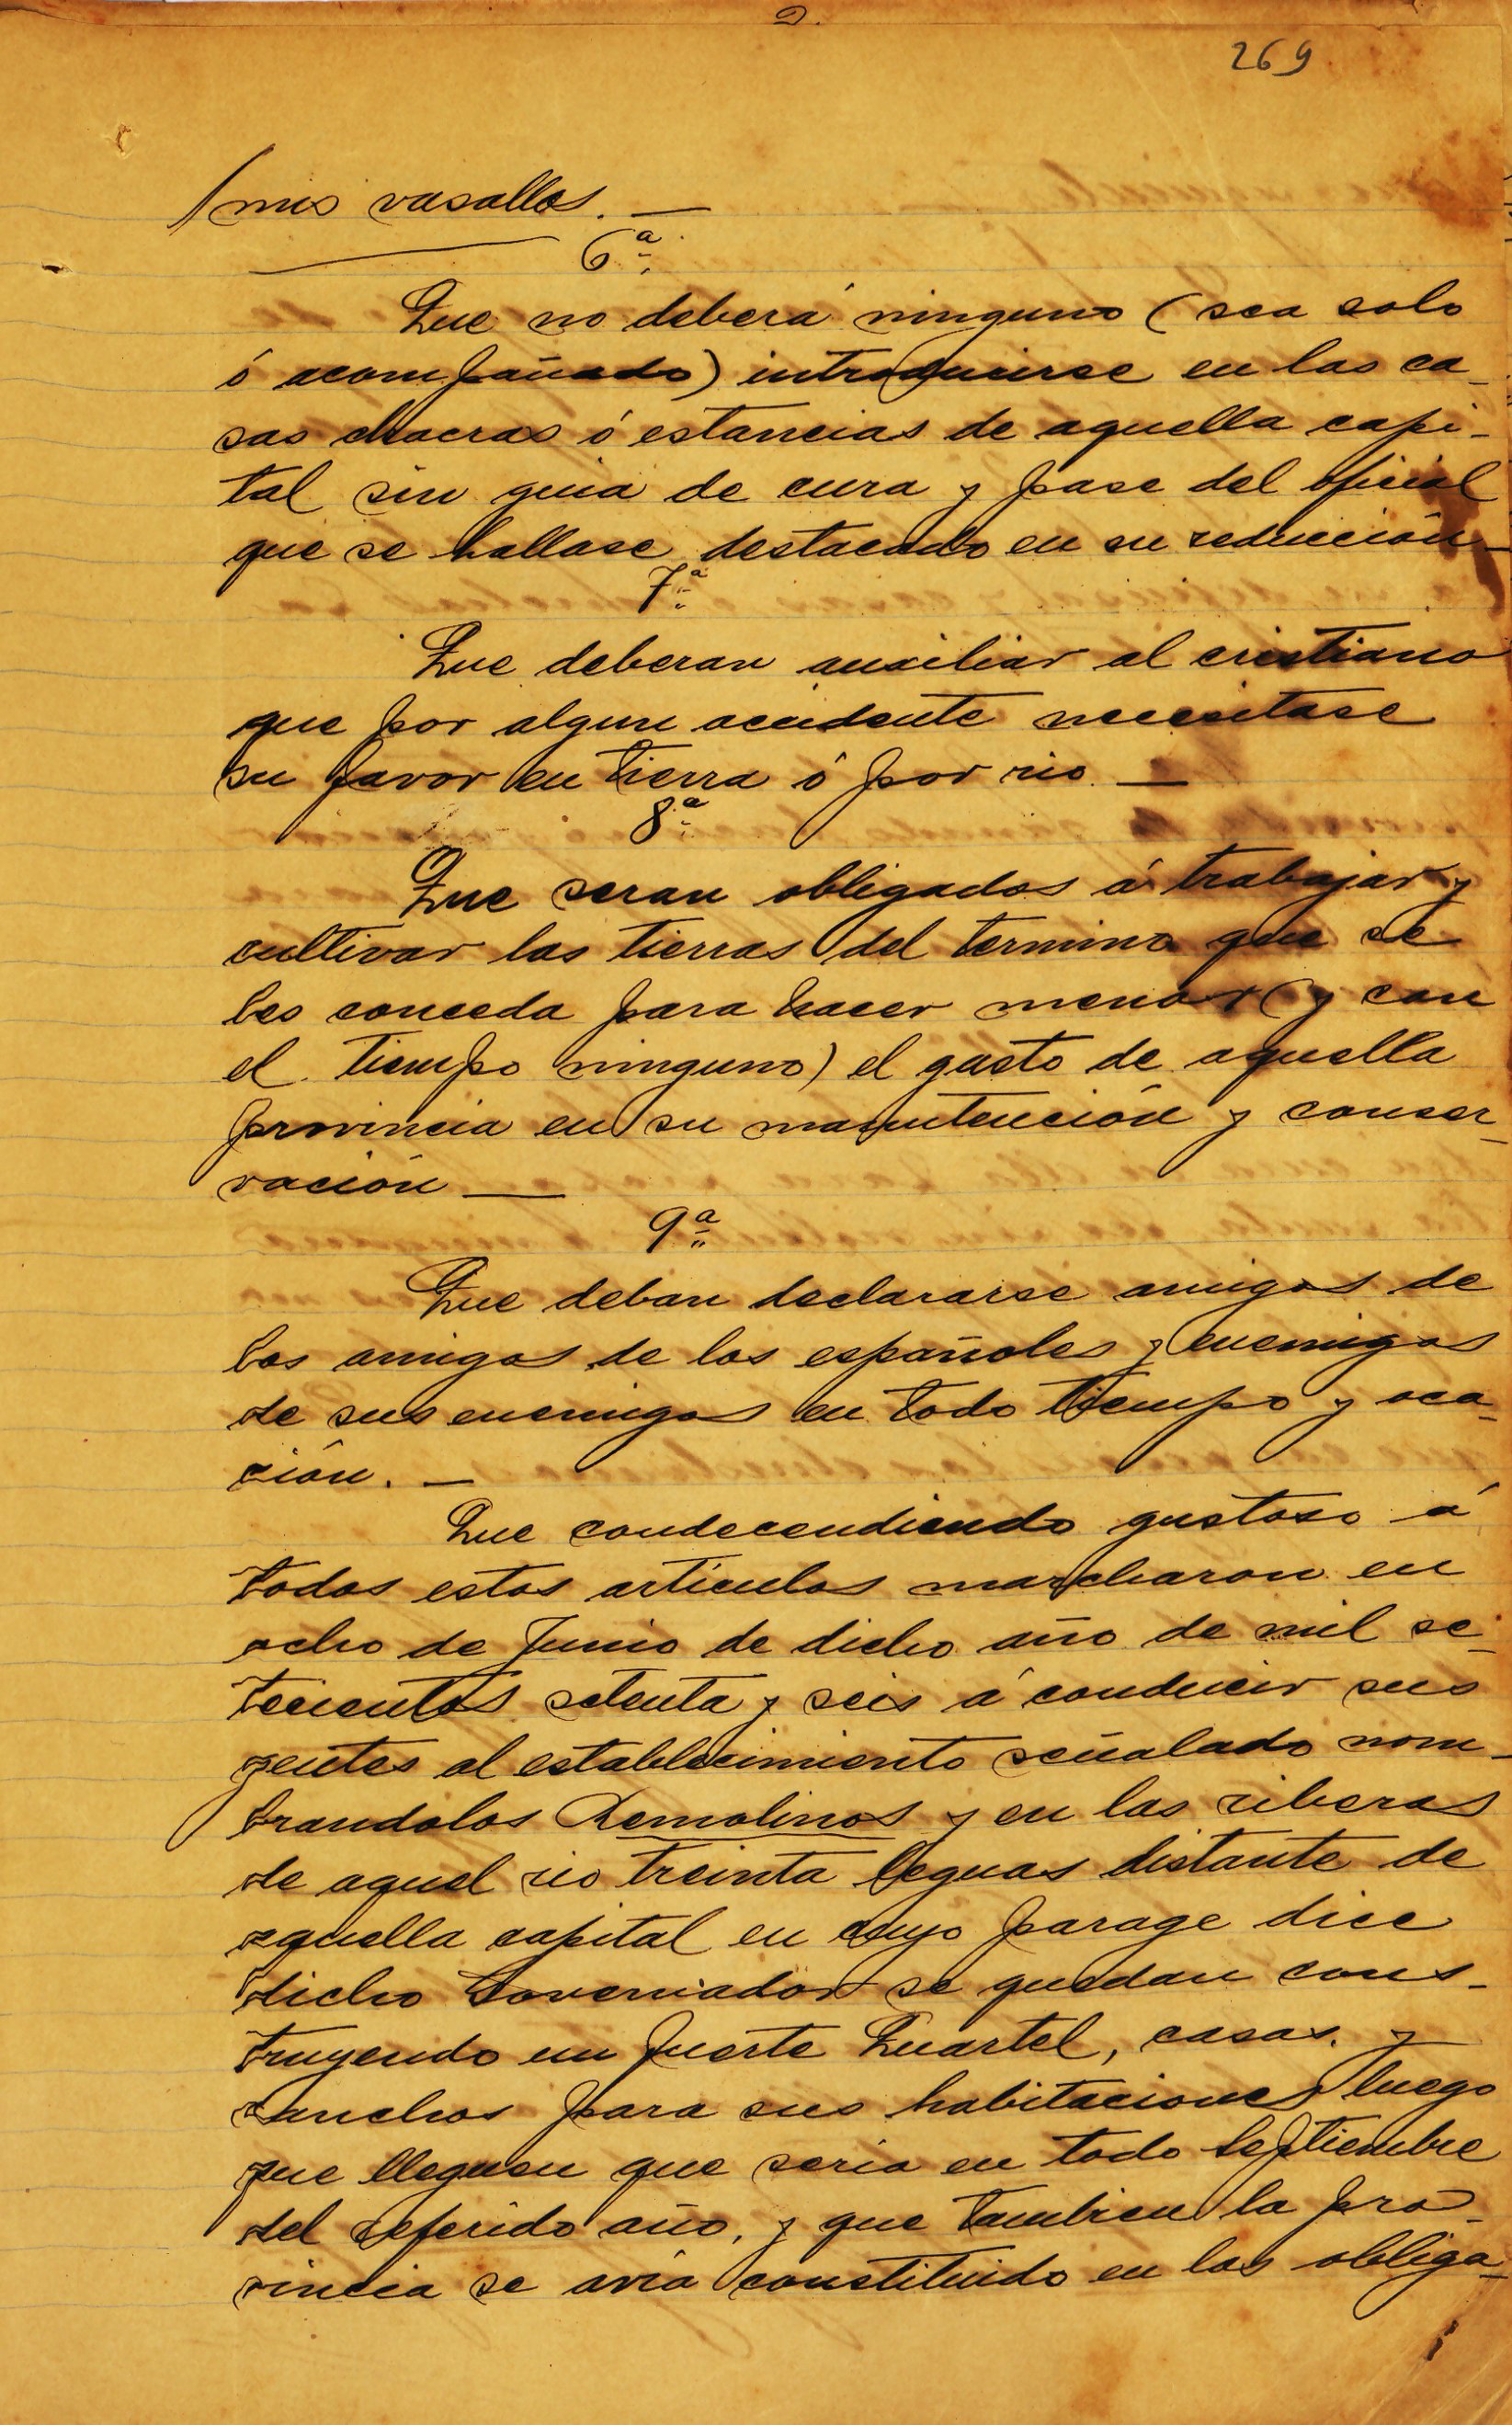 2.
269
/mis vasallos. —
6ª
Que no deberá ninguno (sea solo
ó acompañado) introducirse en las ca-
sas chacras ó estancias de aquella capi-
tal sin guia de cura y pase del oficial
que se hallase destacado en su reducción_
7ª
Que deberan auxiliar al cristiano
que por algun accidente necesitase
su favor en tierra ó por rio. —
8ª
Que seran obligados á trabajar y
cultivar las tierras del termino que se
les conceda para hacer menor (y con
el tiempo ninguno) el gasto de aquella
provincia en su manutención y conser-
vación —
9ª
Que deban declararse amigos de
los amigos de los españoles y enemigos
de sus enemigos en todo tiempo y oca-
ción. —
Que condecendiendo gustoso á
todos estos artículos marcharon en
ocho de Junio de dicho año de mil se-
tecientos setenta y seis á conducir sus
gentes al establecimiento señalado nom-
brandolos Remolinos y en las riberas
de aquel rio treinta leguas distante de
aquella capital en cuyo parage dice
dicho Governador se quedan cons-
truyendo un fuerte Quartel, casas. y
ranchos para sus habitaciones luego
que lleguen que seria en todo Septiembre
del referido año, y que tambien la pro-
vincia se avia constituido en las obliga-